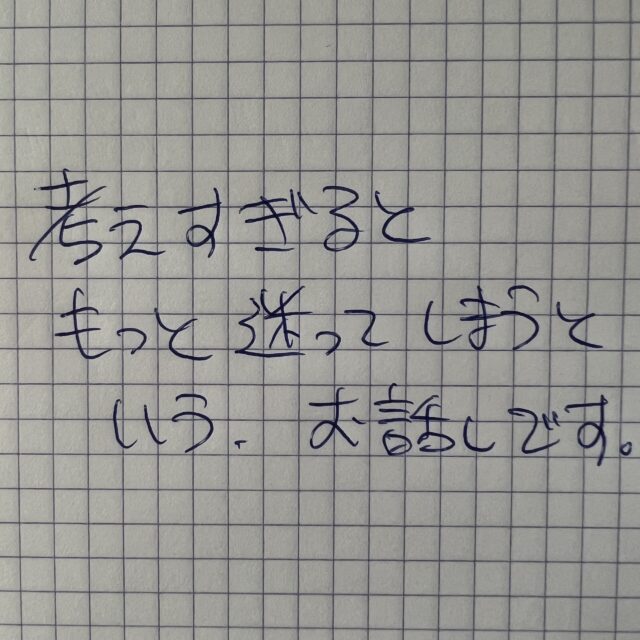 考えすぎると
もっと迷ってしまうと
いう、お話しです。